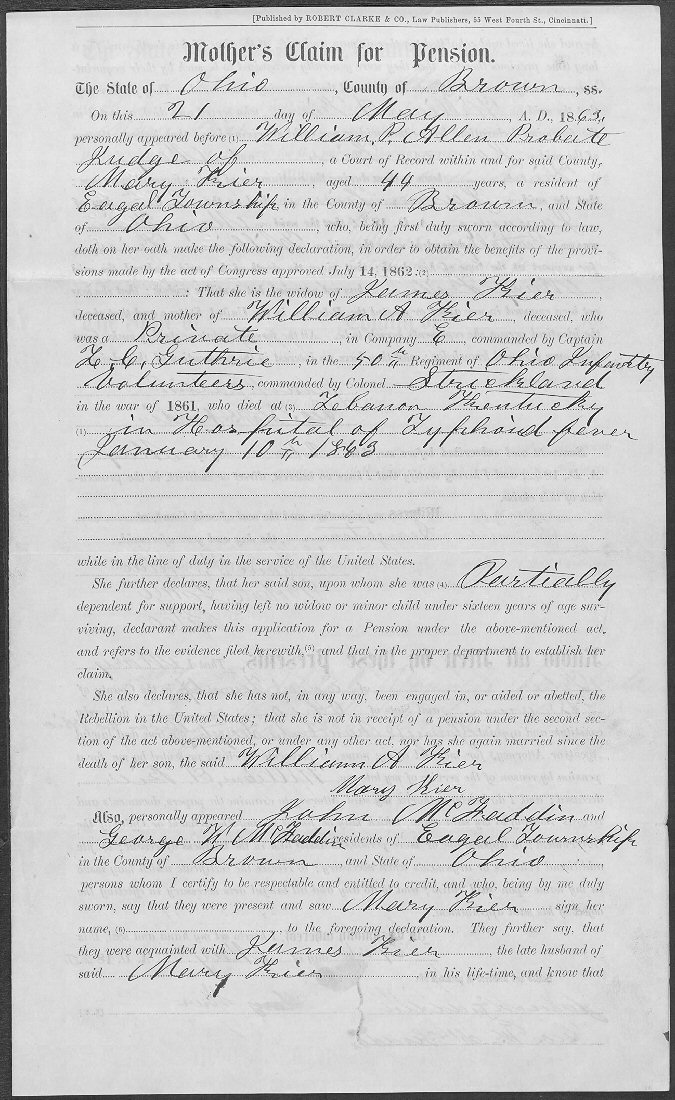 [Published by ROBERT CLARKE & CO., Law Publishers, 55 West Fourth St., Cincinnati.]
Mother's Claim for Pension.
The State of Ohio, County of Brown, ss.
On this 21 day of May, A. D., 1863,
personally appeared before (1) William P. Allen Probate
Judge of, a Court of Record within and for said County,
Mary Kier, aged 44 years, a resident of
Eagal Township in the County of Brown, and State
of Ohio, who, being first duly sworn according to law,
doth on her oath make the following declaration, in order to obtain the benefits of the provi-
sions made by the act of Congress approved July 14, 1862: (2)
: That she is the widow of James Kier,
deceased, and mother of William A Kier, deceased, who
was a Private, in Company E, commanded by Captain
L. C. Guthrie, in the 50th Regiment of Ohio Infantry
Volunteers, commanded by Colonel Strickland
in the war of 1861, who died at (3) Lebanon Kentucky
in Hospital of Typhoid fever
January 10th 1863
while in the line of duty in the service of the United States.
She further declares, that her said son, upon whom she was (4) Partially
dependent for support, having left no widow or minor child under sixteen years of age sur-
viving, declarant makes this application for a Pension under the above-mentioned act,
and refers to the evidence filed herewith, (5) and that in the proper department to establish her
claim.
She also declares, that she has not, in any way, been engaged in, or aided or abetted, the
Rebellion in the United States; that she is not in receipt of a pension under the second sec-
tion of the act above-mentioned, or under any other act, nor has she again married since the
death of her son, the said William A Kier
Mary Kier
Also, personally appeared John McFaddin and
George W McFaddin residents of Eagal Township
in the County of Brown and State of Ohio
persons whom I certify to be respectable and entitled to credit, and who, being by me duly
sworn, say that they were present and saw Mary Kier sign her
name, (6), to the foregoing declaration. They further say, that
they were acquainted with James Kier, the late husband of
said Mary Kier, in his life-time, and know that